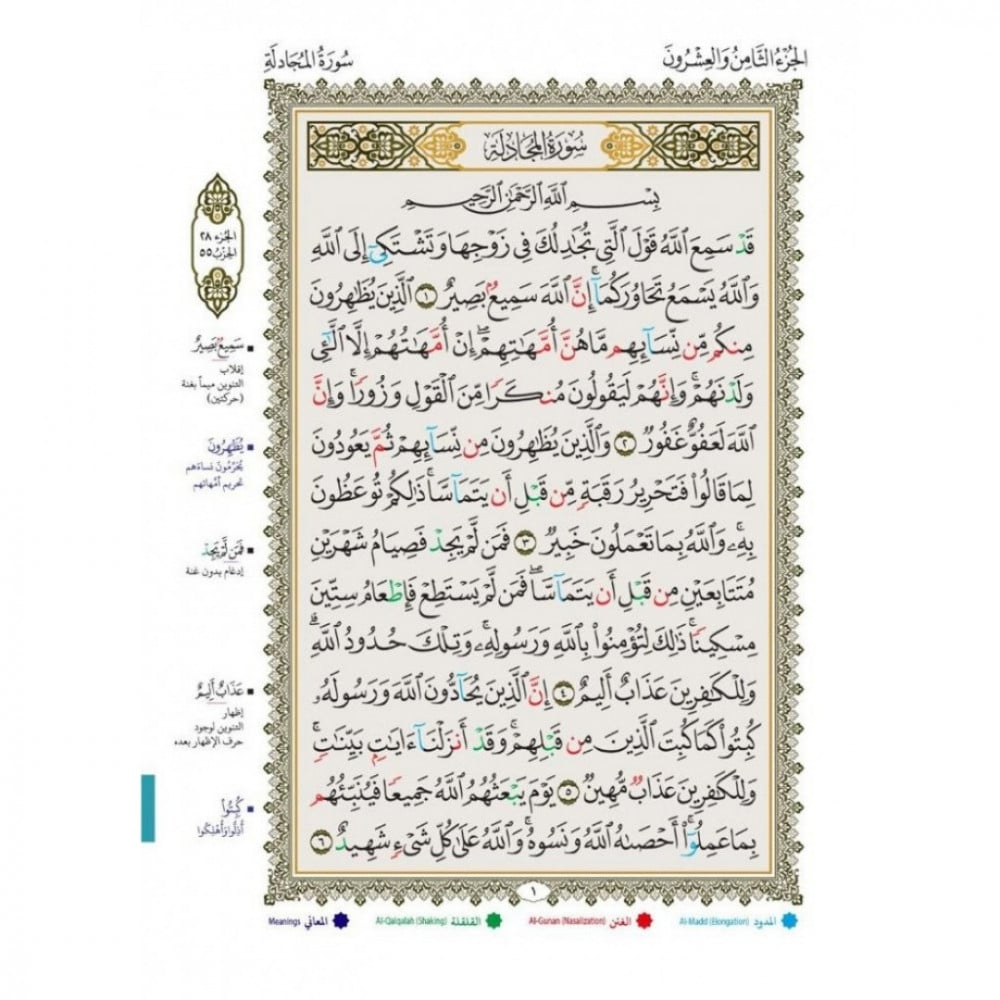 الجُزْءُ الثَّامِنُ وَالعِشْرُونَ
سُورَةُ المُجَادلَةِ
سُورَةُ المُجَادلَةِ
بِسْمِ ٱللَّهِ ٱلرَّحْمَٰنِ ٱلرَّحِيمِ
قَدْ سَمِعَ ٱللَّهُ قَوْلَ ٱلَّتِي تُجَٰدِلُكَ فِي زَوْجِهَا وَتَشْتَكِيٓ إِلَى ٱللَّهِ
وَٱللَّهُ يَسْمَعُ تَحَاوُرَكُمَآۚ إِنَّ ٱللَّهَ سَمِيعُۢ بَصِيرٌ ١ ٱلَّذِينَ يُظَٰهِرُونَ
مِنكُم مِّن نِّسَآئِهِم مَّا هُنَّ أُمَّهَٰتِهِمْۖ إِنْ أُمَّهَٰتُهُمْ إِلَّا ٱلَّٰٓـِٔي
وَلَدْنَهُمْۚ وَإِنَّهُمْ لَيَقُولُونَ مُنكَرًا مِّنَ ٱلْقَوْلِ وَزُورًاۚ وَإِنَّ
ٱللَّهَ لَعَفُوٌّ غَفُورٌ ٢ وَٱلَّذِينَ يُظَٰهِرُونَ مِن نِّسَآئِهِمْ ثُمَّ يَعُودُونَ
لِمَا قَالُواْ فَتَحْرِيرُ رَقَبَةٍ مِّن قَبْلِ أَن يَتَمَآسَّاۚ ذَٰلِكُمْ تُوعَظُونَ
بِهِۦۚ وَٱللَّهُ بِمَا تَعْمَلُونَ خَبِيرٌ ٣ فَمَن لَّمْ يَجِدْ فَصِيَامُ شَهْرَيْنِ
مُتَتَابِعَيْنِ مِن قَبْلِ أَن يَتَمَآسَّاۖ فَمَن لَّمْ يَسْتَطِعْ فَإِطْعَامُ سِتِّينَ
مِسْكِينًاۚ ذَٰلِكَ لِتُؤْمِنُواْ بِٱللَّهِ وَرَسُولِهِۦۚ وَتِلْكَ حُدُودُ ٱللَّهِۗ
وَلِلْكَٰفِرِينَ عَذَابٌ أَلِيمٌ ٤ إِنَّ ٱلَّذِينَ يُحَآدُّونَ ٱللَّهَ وَرَسُولَهُۥ
كُبِتُواْ كَمَا كُبِتَ ٱلَّذِينَ مِن قَبْلِهِمْۚ وَقَدْ أَنزَلْنَآ ءَايَٰتِۭ بَيِّنَٰتٍۚ
وَلِلْكَٰفِرِينَ عَذَابٌ مُّهِينٌ ٥ يَوْمَ يَبْعَثُهُمُ ٱللَّهُ جَمِيعًا فَيُنَبِّئُهُم
بِمَا عَمِلُوٓاْۚ أَحْصَىٰهُ ٱللَّهُ وَنَسُوهُۚ وَٱللَّهُ عَلَىٰ كُلِّ شَيْءٍ شَهِيدٌ ٦
١
الجُزء ٢٨
الحِزب ٥٥
سَمِيعُۢ بَصِيرٌ
إقلاب
التنوين ميماً بغنة
(حركتين)
يُظَٰهِرُونَ
يُحَرِّمُونَ نساءَهم
تحريم أمّهاتهم
فَمَن لَّمْ يَجِدْ
إدغام بدون غنة
عَذَابٌ أَلِيمٌ
إظهار
التنوين لوجود
حرف الإظهار بعده
كُبِتُواْ
أُذِلُّوا وَأُهْلِكُوا
المدود Al-Madd (Elongation)
الغنن Al-Gunan (Nasalization)
القلقلة Al-Qalqalah (Shaking)
المعاني Meanings